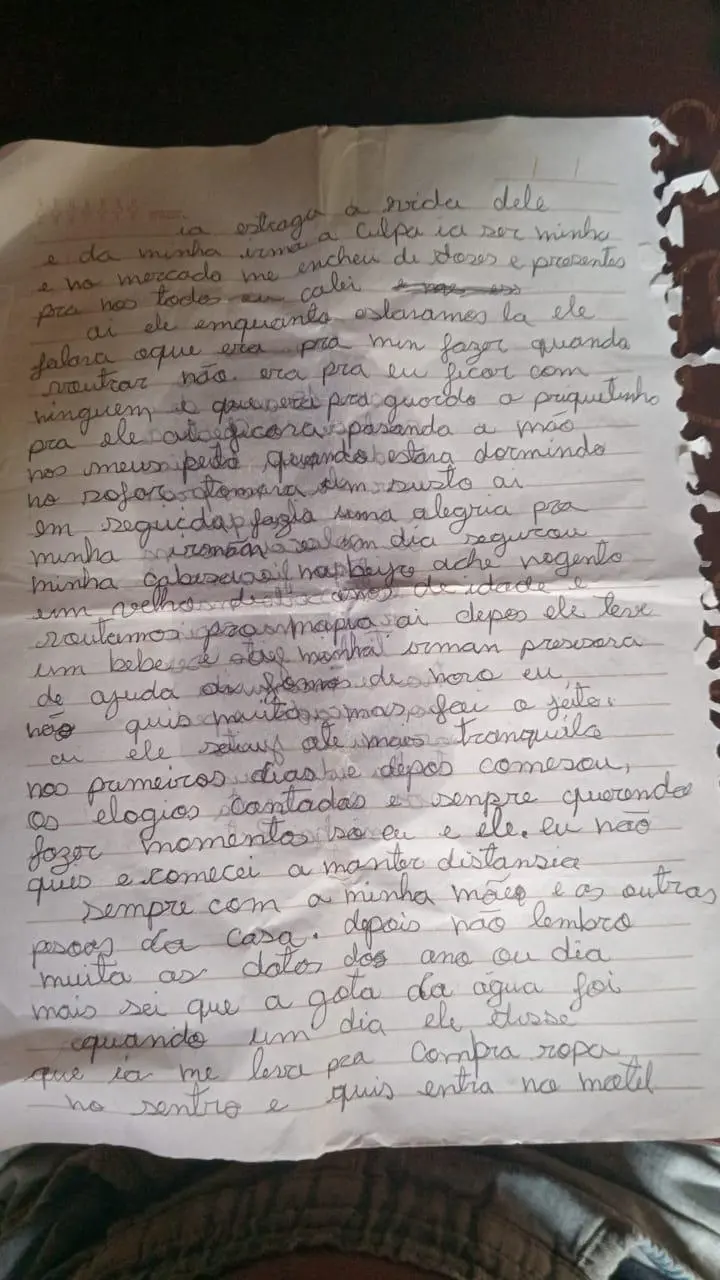 ia estraga a vida dele
e da minha irma a culpa ia ser minha
e no mercado me encheu de doses e presentes
pra nos todos eu calei
ai ele emquanto estavamos la ele
falava oque era pra min fazer quando
voutrar não era pra eu ficar com
ninguem e que era pra guarda o priquetinho
pra ele ficava pasando a mão
nos meus peito quando estava dormindo
no sofa tomava um susto ai
em seguida fazia uma alegria pra
minha irman um dia segurou
minha cabesa beijo ache nogento
um velho de anos de idade e
voutamos pra ai depos ele teve
um bebe e minha irman presisava
de ajuda de novo eu
não quis muito mas foi o jeito.
ai ele ate mais tranquilo
nos primeiros dias e depos comesou,
os elogios cantadas e senpre querendo
fazer momentos so eu e ele. eu não
quis e comecei a manter distansia
sempre com a minha mãe e as outras
pesoas da casa. depois não lembro
muita as datos dos ano ou dia
mais sei que a gota da agua foi
quando um dia ele disse
que ia me leva pra compra ropa
no sentro e quis entra no motel